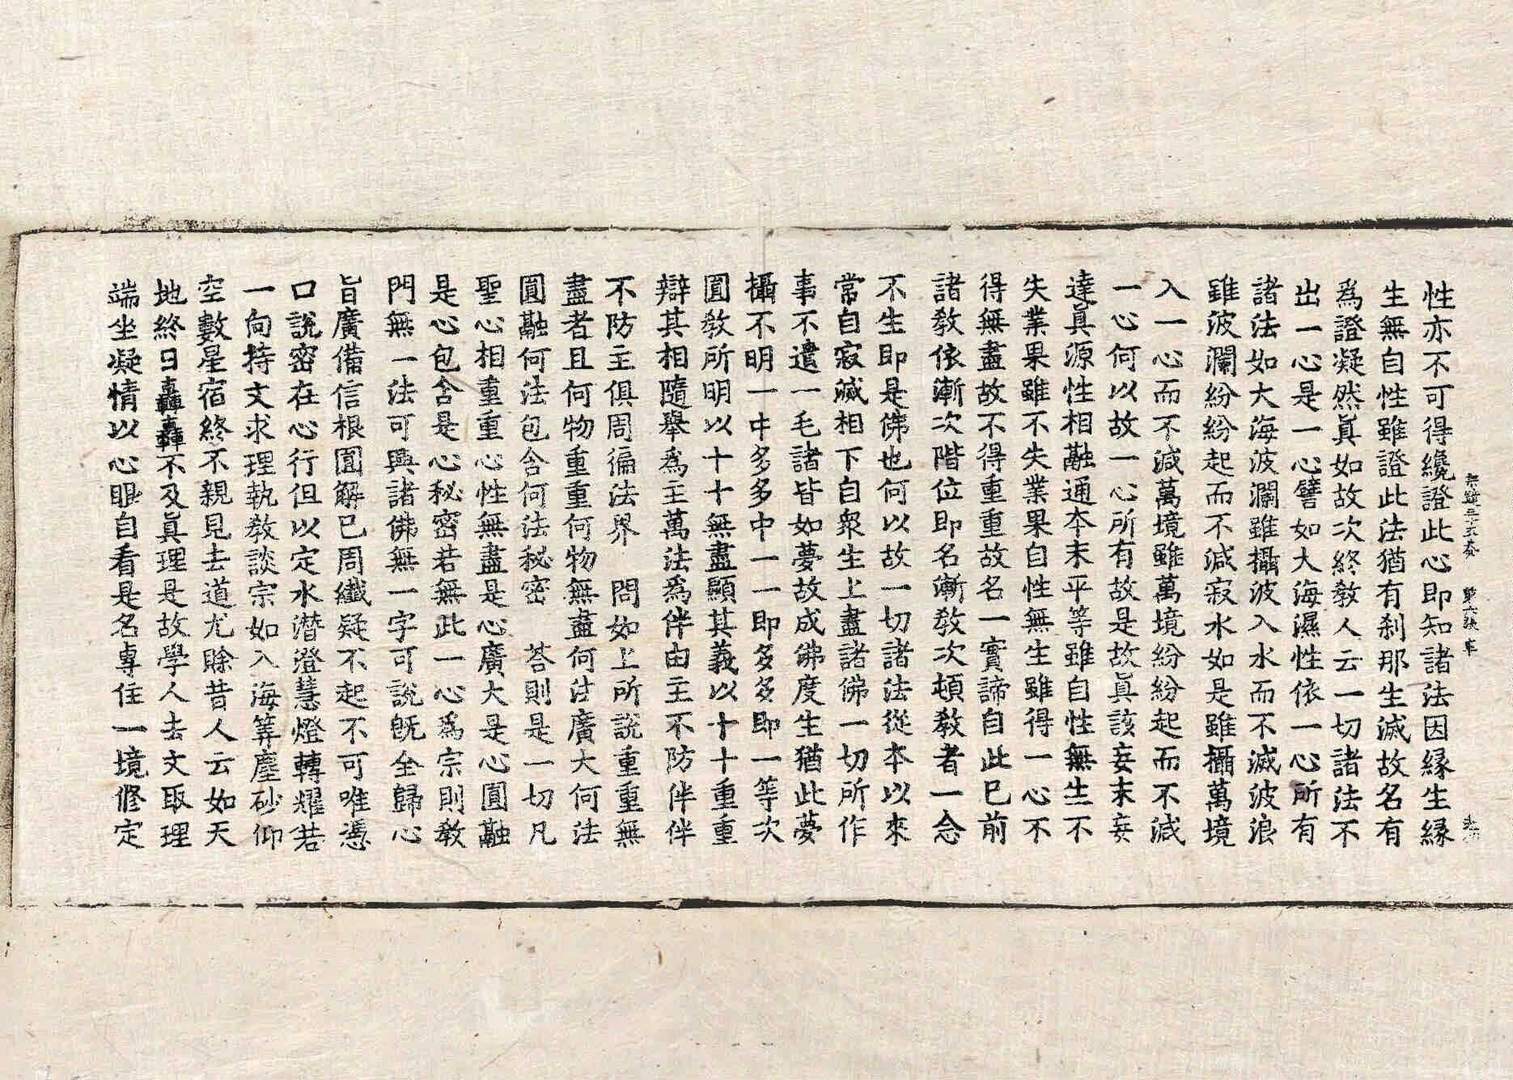 性亦不可得纔證此心即知諸法因緣生緣
生無自性雖證此法猶有剎那生滅故名有
爲證凝然眞如故次終教人云一切諸法不
出一心是一心譬如大海濕性依一心所有
諸法如大海波瀾雖攝波入水而不滅波浪
雖波瀾紛紛起而不減寂水如是雖攝萬境
入一心而不減萬境雖萬境紛紛起而不減
一心何以故一心所有故是故眞該妄末妄
達眞源性相融通夲末平等雖自性無生不
失業果雖不失業果自性無生雖得一心不
得無盡故不得重重故名一實諦自此已前
諸教依漸次階位即名漸教次頓教者一念
不生即是佛也何以故一切諸法從夲以來
常自寂滅相下自衆生上盡諸佛一切所作
事不遣一毛諸皆如夢故成佛度生猶此夢
攝不明一中多多中一一即多多即一等次
圓教所明以十十無盡顯其義以十十重重
辯其相隨舉爲主萬法爲伴由主不防伴伴
不防主俱周徧法界　問如上所說重重無
盡者且何物重重何物無盡何法廣大何法
圓融何法包含何法秘密　荅則是一切凡
聖心相重重心性無盡是心廣大是心圓融
是心包含是心秘密若無此一心爲宗則教
門無一法可興諸佛無一字可說既全歸心
旨廣備信根圓解已周纖疑不起不可唯憑
口說密在心行但以定水潛澄慧燈轉耀若
一向持文求理執教談宗如入海筭塵砂仰
空數星宿終不親見去道尤賒昔人云如天
地終日轟轟不及眞理是故學人去文取理
端坐凝情以心眼自看是名專住一境修定